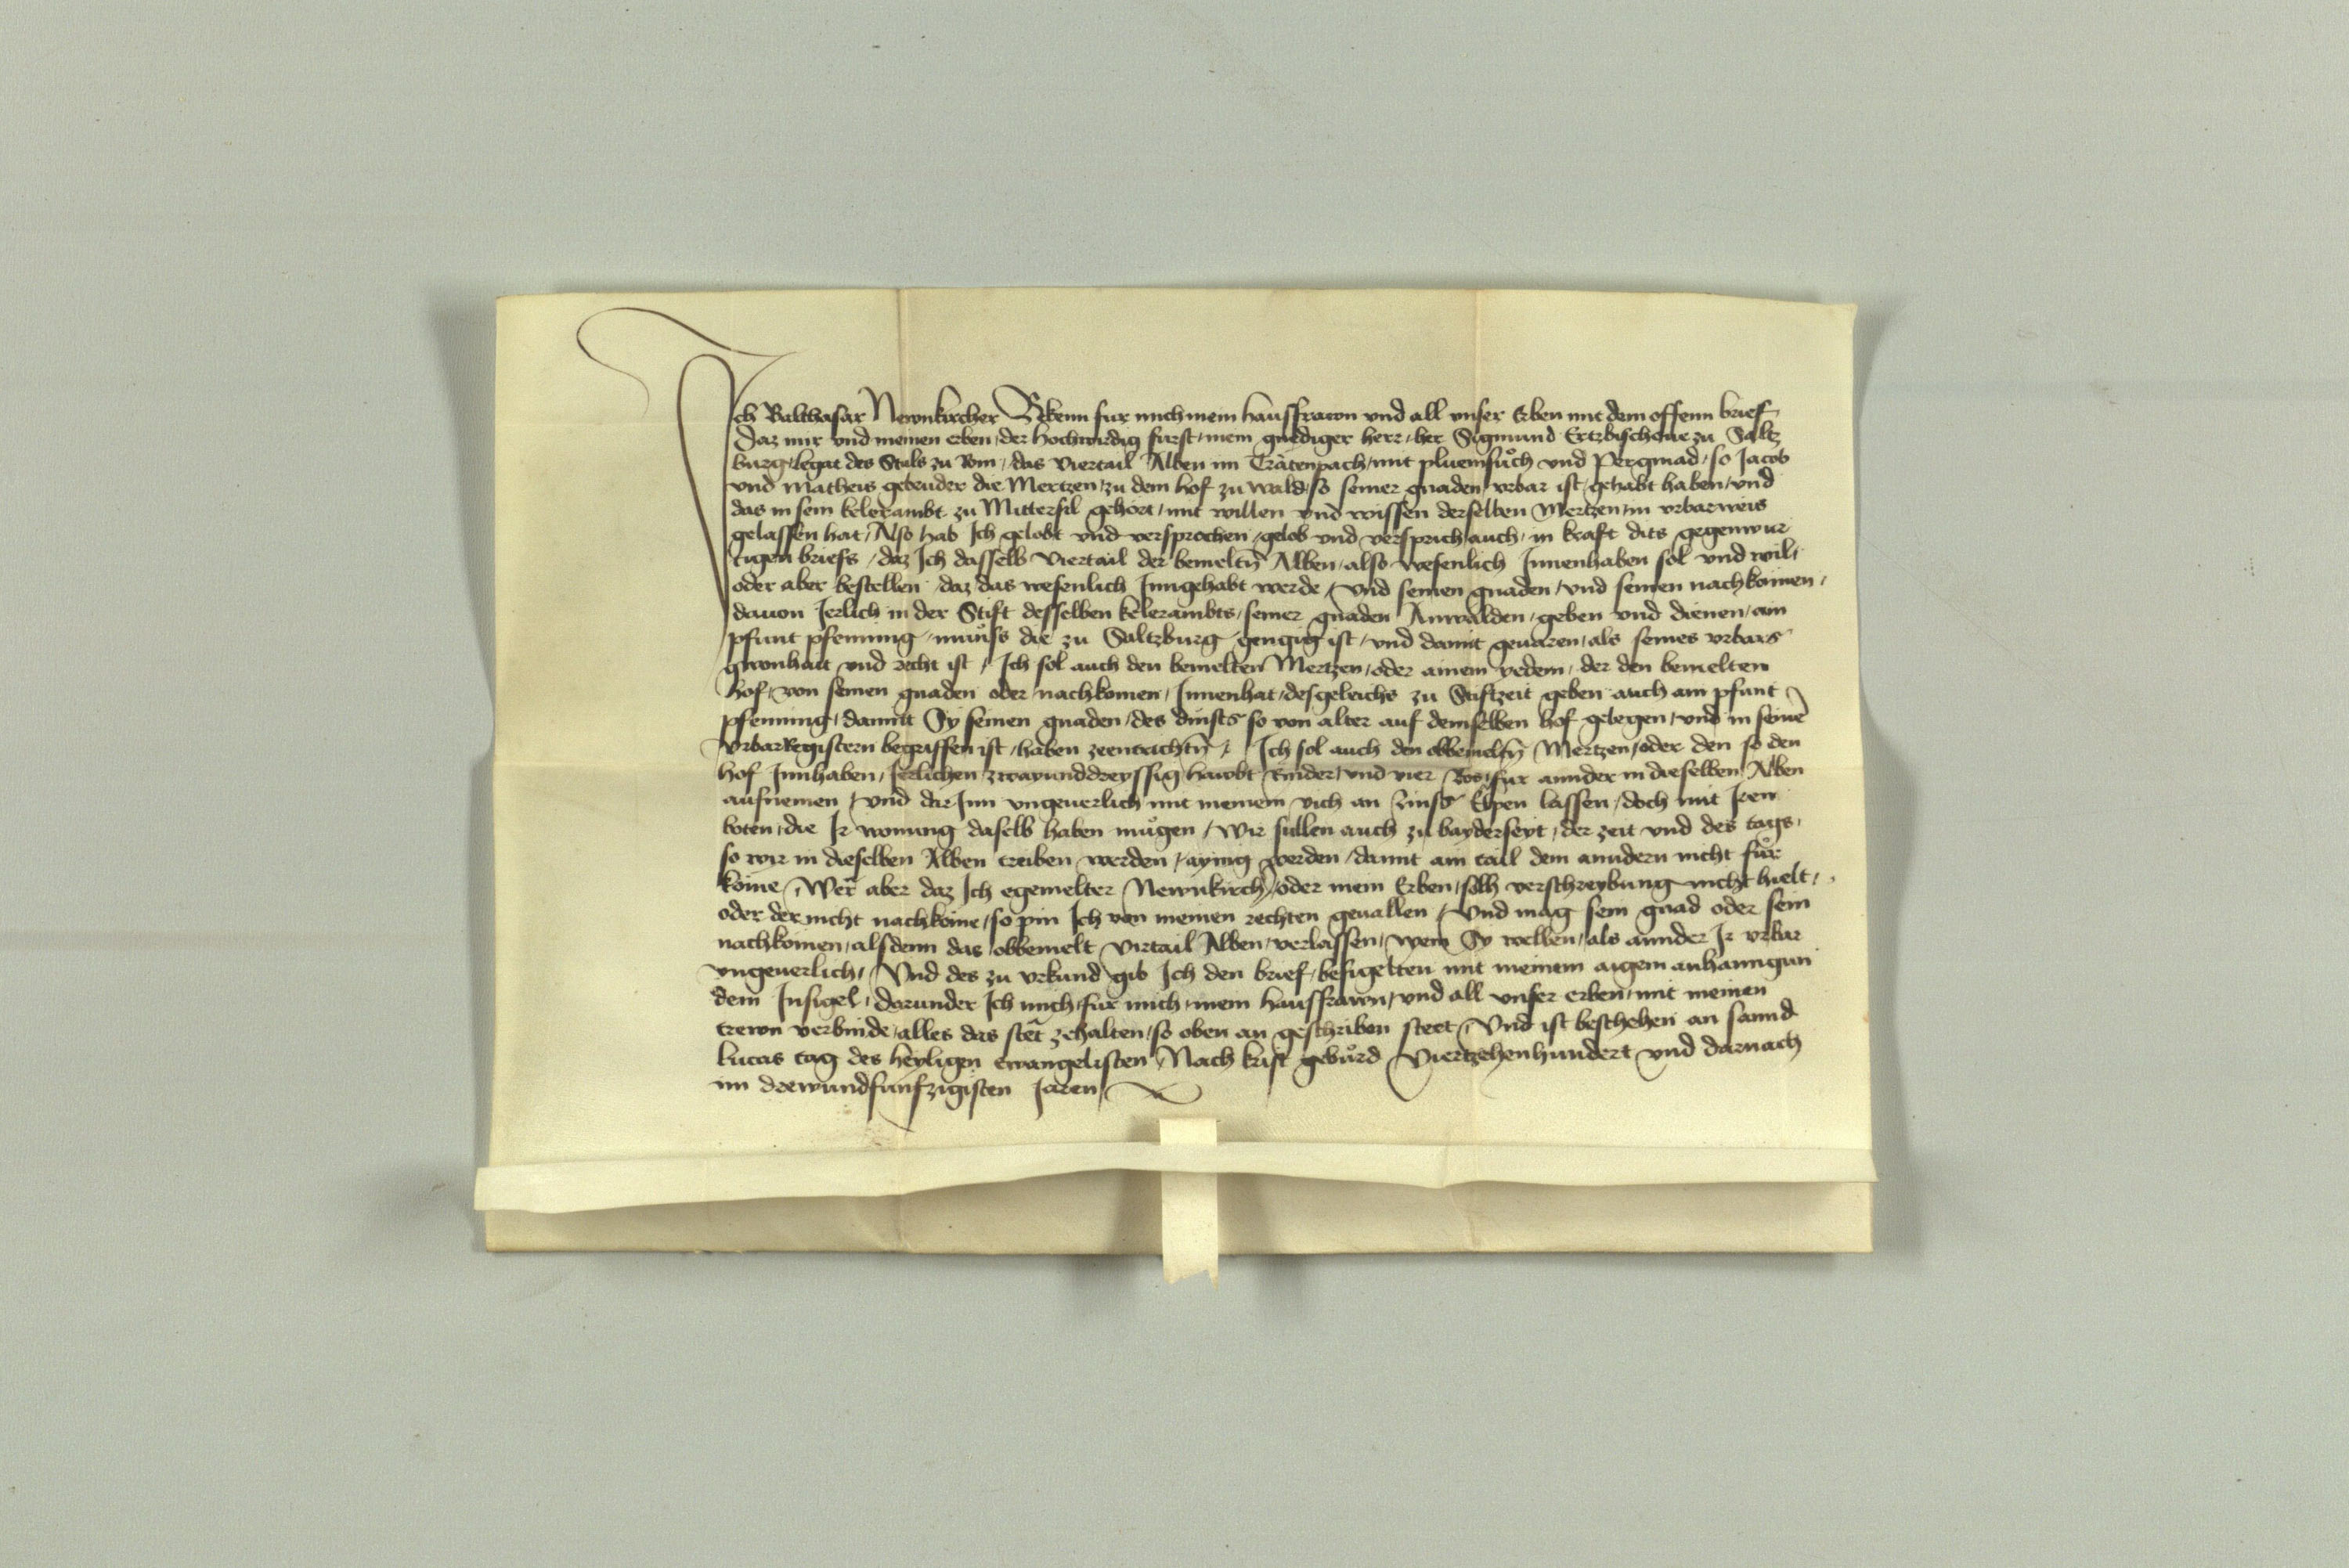 Ich Balthasar Newnkircher Bekenn fur mich mein haussfrawn und all unser Erben mit dem offenn brief
Daz mir und meinen erben / der hochwirdig furst / mein gnediger herr / her Sigmund Ertzbischoue zu Saltz
burg / legat des Stuls zu Rom / das viertail Alben im Trätenpach / mit pluemsuͦch und Pergmad / so Jacob
und Matheis gebruder die Mertzen / zu dem hof zu wald / so seiner gnaden urbar ist / gehabt haben / und
das in sein kelerambt zu Mittersil gehört / mit willen und wissen derselben Mertzen / in urbarweis
gelassen hat / Also hab Ich gelobt und versprochen / gelob und versprich auch / in kraft dits gegenwur
tigen briefs / daz Ich dasselb viertail der bemeltn̄ Alben / also wesenlich Innenhaben sol und wil /
oder aber bestellen / daz das wesenlich Inngehabt werde / Und seinen gnaden / und seinen nachkomen /
dauon Jerlich in der Stift desselben kelerambts / seiner gnaden Anwälden / geben und dienen / ain
pfunt pfenning / muͦnss die zu Saltzburg gengig ist / und damit geuaren / als seines urbars
gwonhait und recht ist / Ich sol auch den bemelten Mertzen / oder ainem yedem / der den bemelten
hof / von seinen gnaden oder nachkomen / Innenhat / desgeleichs zu Stiftzeit geben auch ain pfunt
pfenning / damit Sy seinen gnaden / des dinsts so von alter auf demselben hof gelegen / und in seinē
UrbarRegistern begriffen ist / haben zeentrichtn̄ / Ich sol auch den obbemeltn̄ Mertzen / oder den so den
hof Innhaben / Jerlichen / zwayunddreyssig hawbt Rinder / und vier Ros / fur annder in dieselben Alben
aufnemen / und dar Inn ungeuerlich mit meinem vich an Zinss Etzen lassen / doch mit Iren
boten / die Ir wonung daselb haben muͦgen / Wir sullen auch zu bayderseyt / der zeit und des tags /
so wir in dieselben Alben treiben werden / aynig werden / damit ain tail dem anndern nicht fuͦr
köme / Wer aber daz Ich egemelter Newnkirch̄ / oder mein Erben / solh verschreybung nicht hielt /
oder der nicht nachköme / so pin Ich von meinen rechten geuallen / Und mag sein gnad oder sein
nachkomen / alsdenn das obbemelt virtail Alben / verlassen / wem Sy wellen / als annder Ir urbar
ungeuerlich / Und des zu urkund gib Ich den brief / besigelten mit meinem aigem anhanngun
dem Insigel / darunder Ich mich / fur mich / mein haussfrawn / und all unser erben / mit meinen
trewn verbinde / alles das stet zehalten / so oben an geschriben steet / Und ist beschehen an sannd
Lucas tag des heyligen ewangelisten / Nach krist gebuͦrd Viertzehenhundert und darnach
im drewundfunfzigisten Jaren /